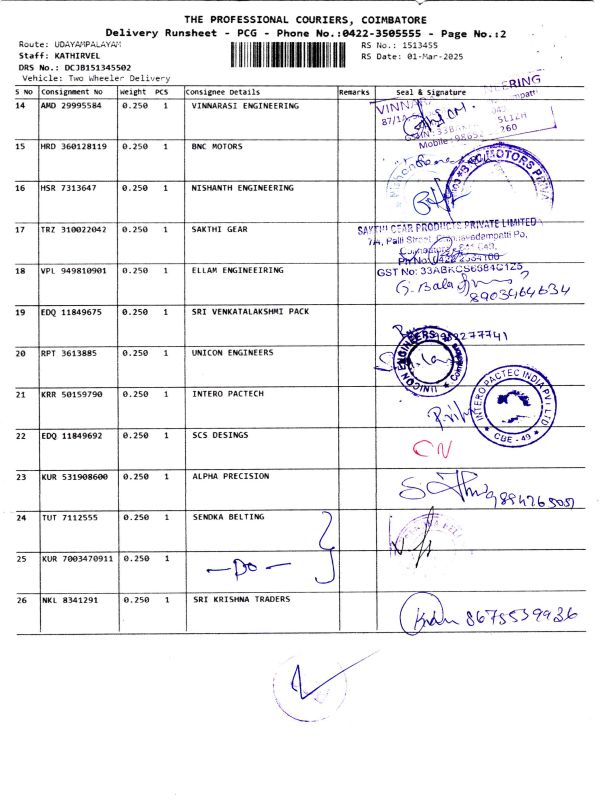 THE PROFESSIONAL COURIERS, COIMBATORE
Delivery Runsheet - PCG - Phone No.:0422-3505555 - Page No.:2
Route: UDAYAMPALAYAM RS No.: 1513455
Staff: KATHIRVEL RS Date: 01-Mar-2025
DRS No.: DCJB151345502
Vehicle: Two Wheeler Delivery
S NO Consignment No Weight PCS Consignee Details Remarks Seal & Signature
14 AMD 29995584 0.250 1 VINNARASI ENGINEERING
15 HRD 360128119 0.250 1 BNC MOTORS
16 HSR 7313647 0.250 1 NISHANTH ENGINEERING
17 TRZ 310022042 0.250 1 SAKTHI GEAR SAKTHI GEAR PRODUCTS PRIVATE LIMITED
18 VPL 949810901 0.250 1 ELLAM ENGINEEIRING GST No: 33ABKCS6684G1Z5
G. Bala
8903464634
19 EDQ 11849675 0.250 1 SRI VENKATALAKSHMI PACK
20 RPT 3613885 0.250 1 UNICON ENGINEERS UNICON ENGINEERS
21 KRR 50159790 0.250 1 INTERO PACTECH INTERO PACTEC INDIA PVT LTD
CBE - 49
22 EDQ 11849692 0.250 1 SCS DESINGS CN
23 KUR 531908600 0.250 1 ALPHA PRECISION
24 TUT 7112555 0.250 1 SENDKA BELTING
25 KUR 7003470911 0.250 1 - Do -
26 NKL 8341291 0.250 1 SRI KRISHNA TRADERS 8675539936